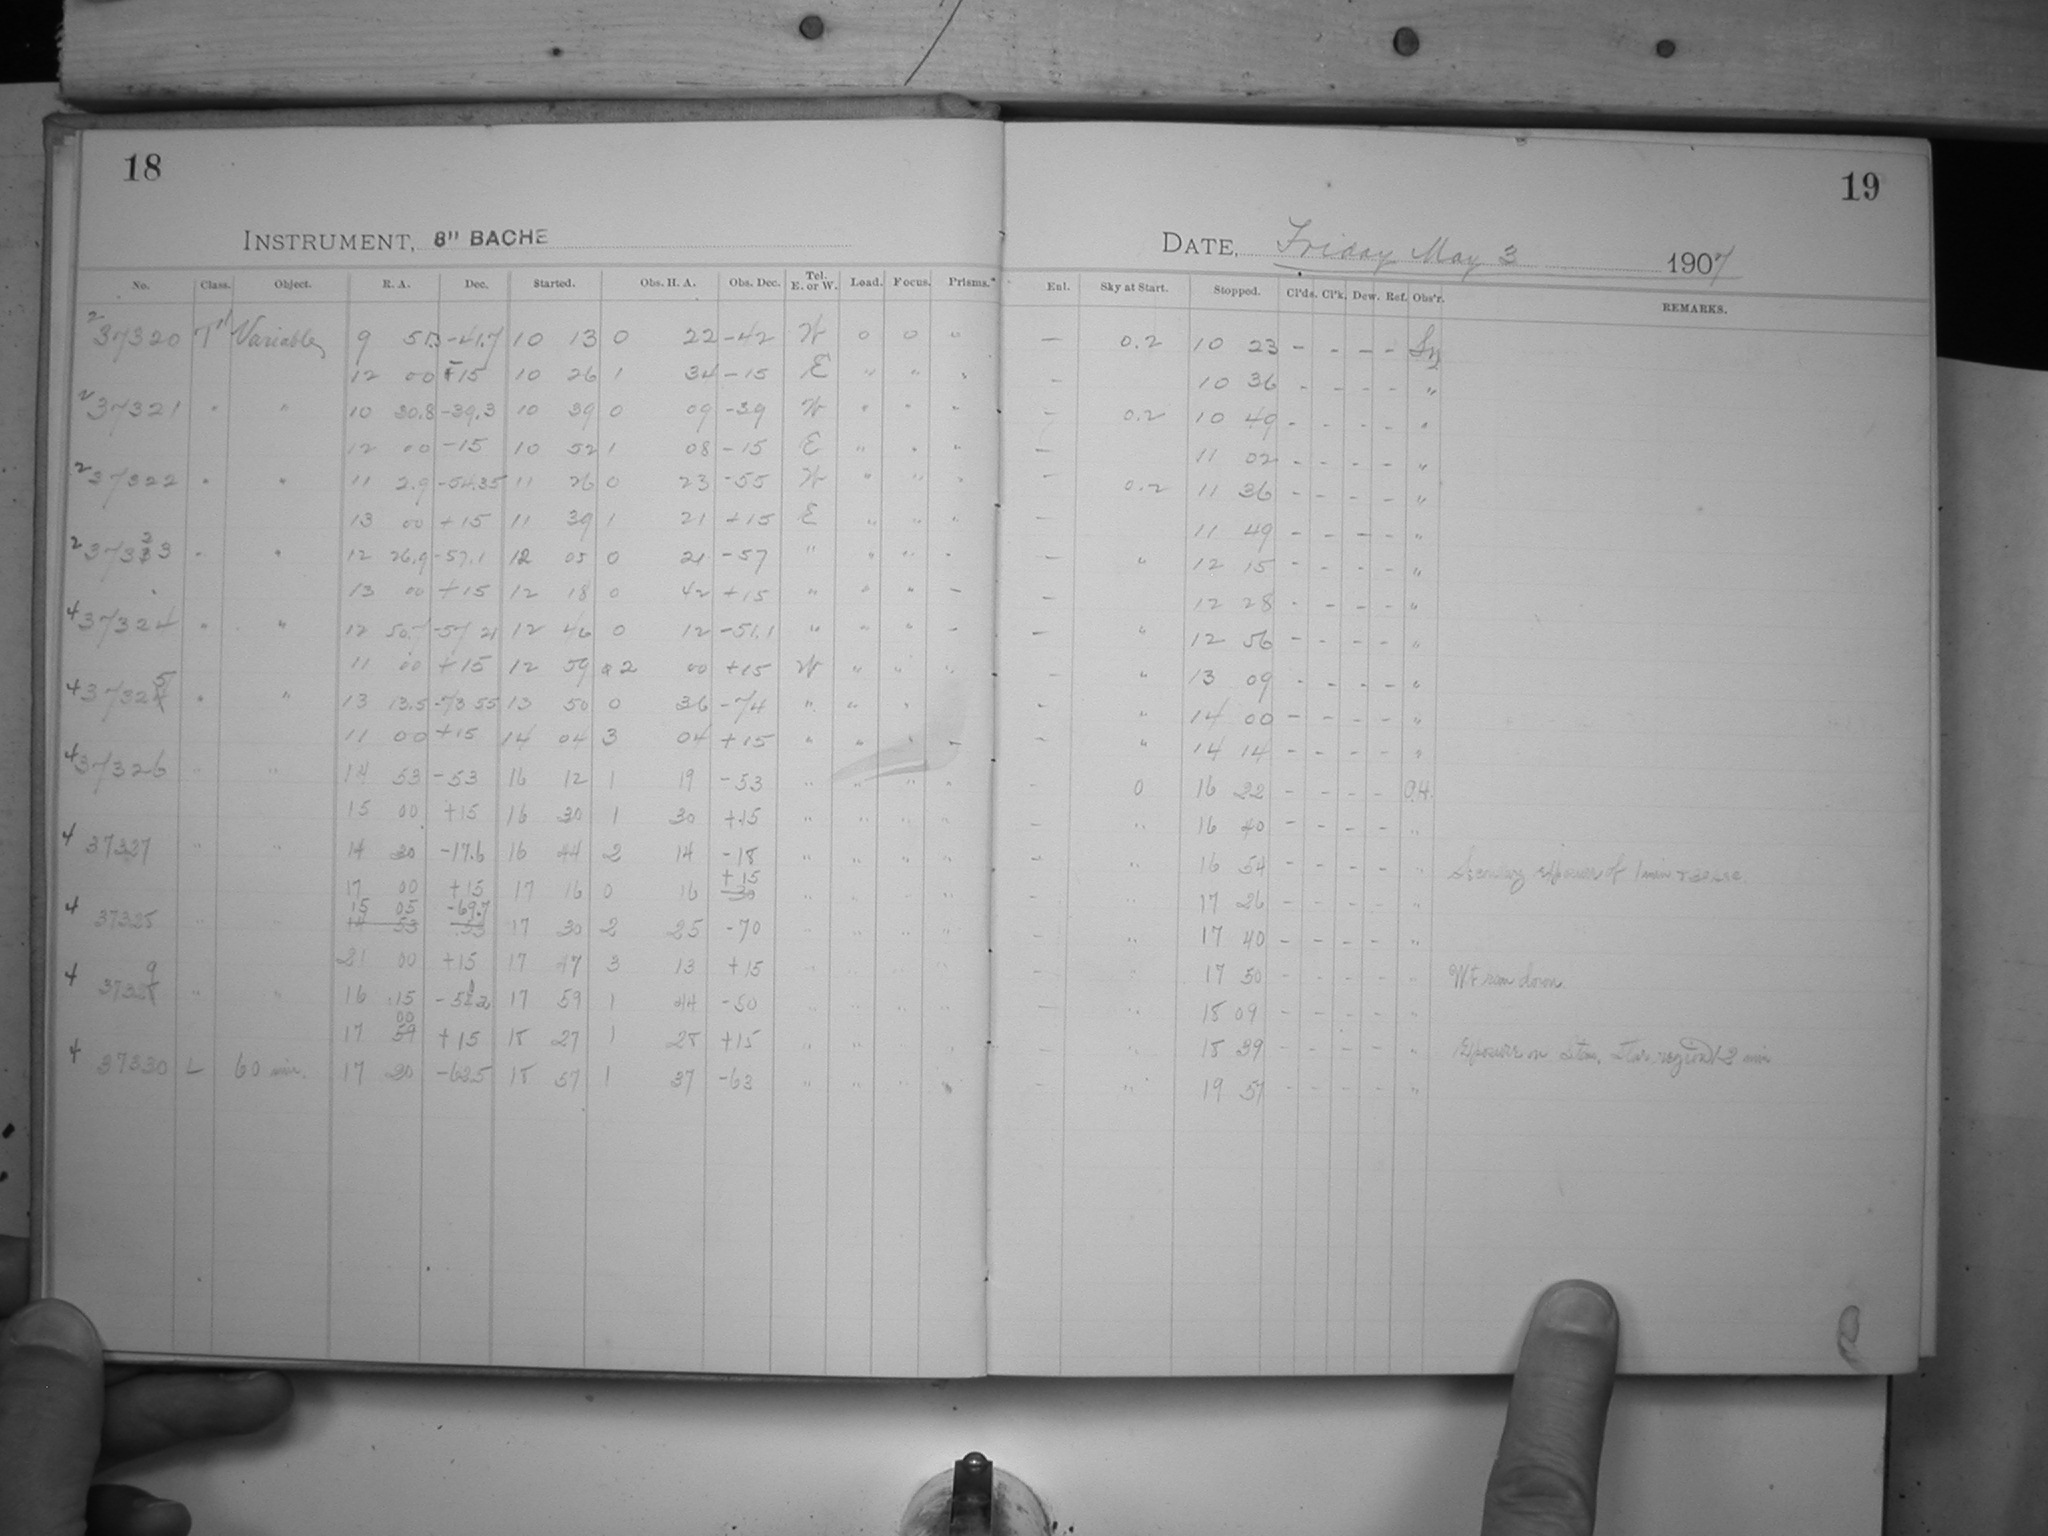 18
INSTRUMENT, 8" BACHE
No. Class. Object. R. A. Dec. Started. Obs. H. A. Obs. Dec. Tel. E. or W. Load. Focus. Prisms.
2 37320 Variables 9 51.3 -41.7 10 13 0 22 -42 W 0 0 "
12 00 +15 10 26 1 34 -15 E " " "
2 37321 " " 10 30.8 -39.3 10 39 0 09 -39 W " " "
12 00 -15 10 52 1 08 -15 E " " "
2 37322 " " 11 2.9 -54.35 11 26 0 23 -55 W " " "
13 00 +15 11 39 1 21 +15 E " " "
2 37323 " " 12 26.9 -57.1 12 05 0 21 -57 " " " "
13 00 +15 12 18 0 42 +15 " " " -
4 37324 " " 12 50.7 -57 21 12 46 0 12 -51.1 " " " -
11 00 +15 12 59 2 00 +15 W " " "
4 37325 " " 13 13.5 -73 55 13 50 0 36 -74 " " "
11 00 +15 14 04 3 04 +15 " " " -
4 37326 " " 14 53 -53 16 12 1 19 -53 " " " "
15 00 +15 16 30 1 30 +15 " " " "
4 37327 " " 14 30 -17.6 16 44 2 14 -18 " " " "
17 00 +15 17 16 0 16 +15 " " " "
4 37328 " " 15 05 -69.7 17 30 2 25 -70 " " " "
21 00 +15 17 47 3 13 +15 " " " "
4 37329 " " 16 15 17 59 1 44 -50 " " " "
17 00 +15 18 27 1 28 +15 " " " "
4 37330 L 60 min. 17 20 -62.5 18 57 1 37 -63 " " " "
19
DATE, Friday May 3 1907
Enl. Sky at Start. Stopped. Cl'ds. Cl'k. Dew. Ref. Obs'r. REMARKS.
- 0.2 10 23 - - - -
- 10 36 - - - - "
- 0.2 10 49 - - - - "
- 11 02 - - - - "
- 0.2 11 36 - - - - "
- 11 49 - - - - "
- " 12 15 - - - - "
- 12 28 - - - - "
- " 12 56 - - - - "
- " 13 09 - - - - "
- " 14 00 - - - - "
- " 14 14 - - - - "
- 0 16 22 - - - - O.H.
- " 16 40 - - - - "
- " 16 54 - - - - " of 1 min
- " 17 26 - - - - "
- " 17 40 - - - - "
- " 17 50 - - - - " Wt run down
- " 18 09 - - - - "
- " 18 39 - - - - " on 2 min
- " 19 57 - - - - "